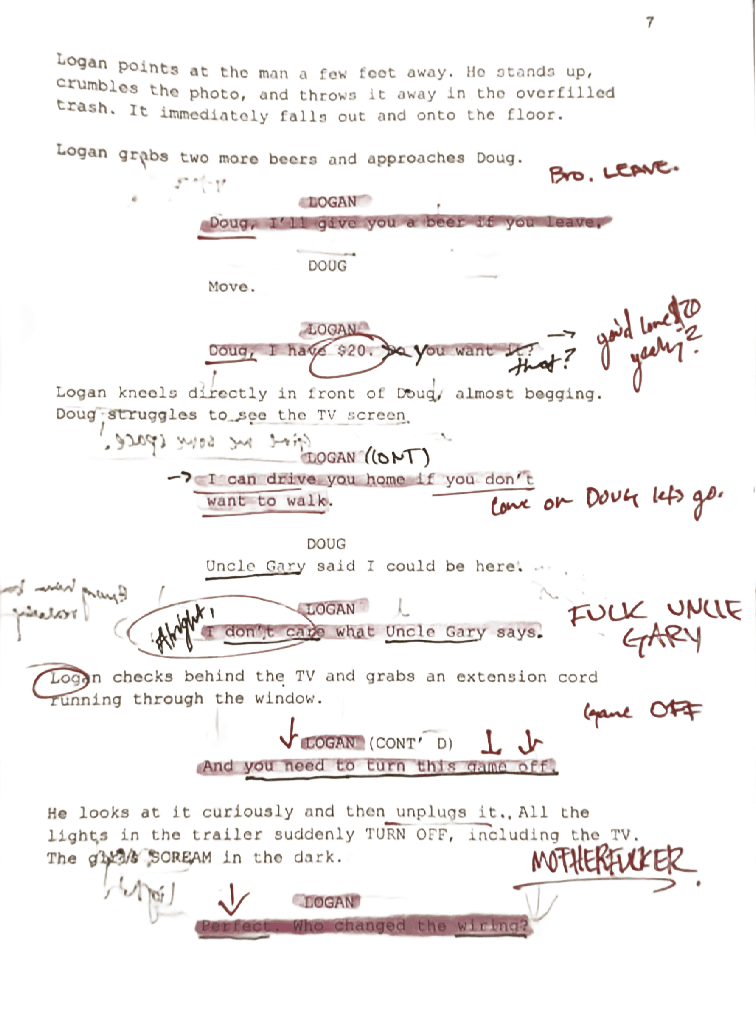 7
Logan points at the man a few feet away. He stands up,
crumbles the photo, and throws it away in the overfilled
trash. It immediately falls out and onto the floor.
Logan grabs two more beers and approaches Doug.
Bro. LEAVE.
LOGAN
Doug, I'll give you a beer if you leave.
DOUG
Move.
LOGAN
Doug, I have $20. Do you want it? that?
$20
Logan kneels directly in front of Doug, almost begging.
Doug struggles to see the TV screen.
LOGAN (CONT)
I can drive you home if you don't
want to walk.
Come on DOUG lets go.
DOUG
Uncle Gary said I could be here.
LOGAN
Alright, I don't care what Uncle Gary says.
FUCK UNCLE
GARY
Logan checks behind the TV and grabs an extension cord
running through the window.
Game OFF
LOGAN (CONT' D)
And you need to turn this game off.
He looks at it curiously and then unplugs it. All the
lights in the trailer suddenly TURN OFF, including the TV.
The SCREAM in the dark.
MOTHERFUCKER.
LOGAN
Perfect. Who changed the wiring?